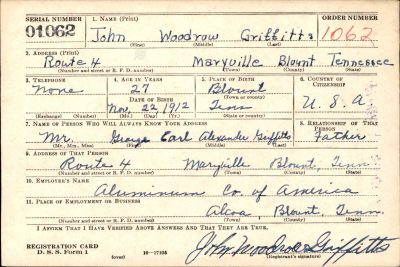 SERIAL NUMBER 1. NAME (Print) ORDER NUMBER
01062 John Woodrow Griffitts 1062
(First) (Middle) (Last)
2. ADDRESS (Print)
Route 4 Maryville Blount Tennessee
(Number and street or R. F. D. number) (Town) (County) (State)
3. TELEPHONE 4. AGE IN YEARS 5. PLACE OF BIRTH 6. COUNTRY OF CITIZENSHIP
None 27 Blount
DATE OF BIRTH (Town or county)
Nov. 22, 1912 Tenn U. S. A
(Exchange) (Number) (Mo.) (Day) (Yr.) (State or country)
7. NAME OF PERSON WHO WILL ALWAYS KNOW YOUR ADDRESS 8. RELATIONSHIP OF THAT PERSON
Mr. George Carl Alexander Griffitts Father
(Mr., Mrs., Miss) (First) (Middle) (Last)
9. ADDRESS OF THAT PERSON
Route 4 Maryville Blount, Tenn
(Number and street or R. F. D. number) (Town) (County) (State)
10. EMPLOYER'S NAME
Aluminum Co. of America
11. PLACE OF EMPLOYMENT OR BUSINESS
Alcoa, Blount, Tenn.
(Number and street or R. F. D. number) (Town) (County) (State)
I AFFIRM THAT I HAVE VERIFIED ABOVE ANSWERS AND THAT THEY ARE TRUE.
REGISTRATION CARD John Woodrow Griffitts
D. S. S. Form 1 (over) 16—17105 (Registrant's signature)